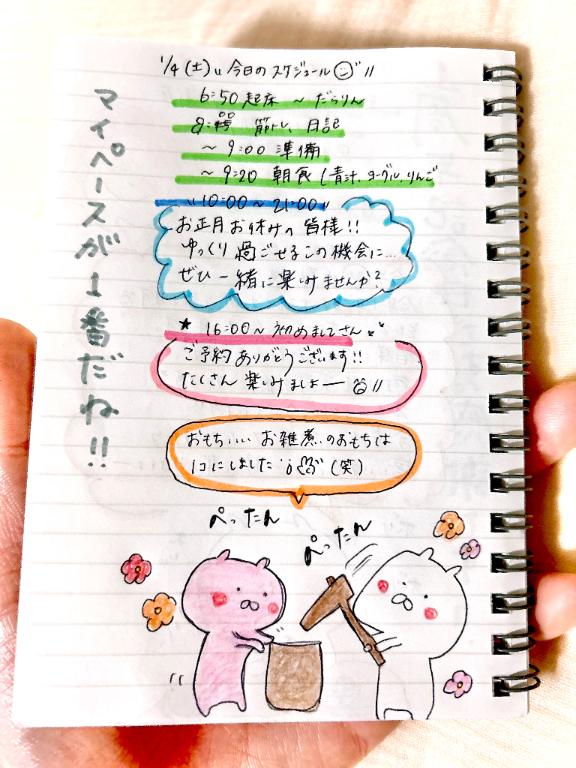 1/4(土)〃今日のスケジュール〃
6:50起床 〜だらりん
8:00 筋トレ、日記
〜9:00 準備
〜9:20 朝食(青汁、ヨーグル、りんご
〃10:00〜21:00〃
お正月お休みの皆様!!
ゆっくり過ごせるこの機会に...
ぜひ一緒に楽しみませんか?
★16:00〜初めましてさん
ご予約ありがとうございます!!
たくさん楽しみましょー〃
おもち.... お雑煮のおもちは
1コにしました(笑)
ぺったん
ぺったん
マイペースが1番だね!!